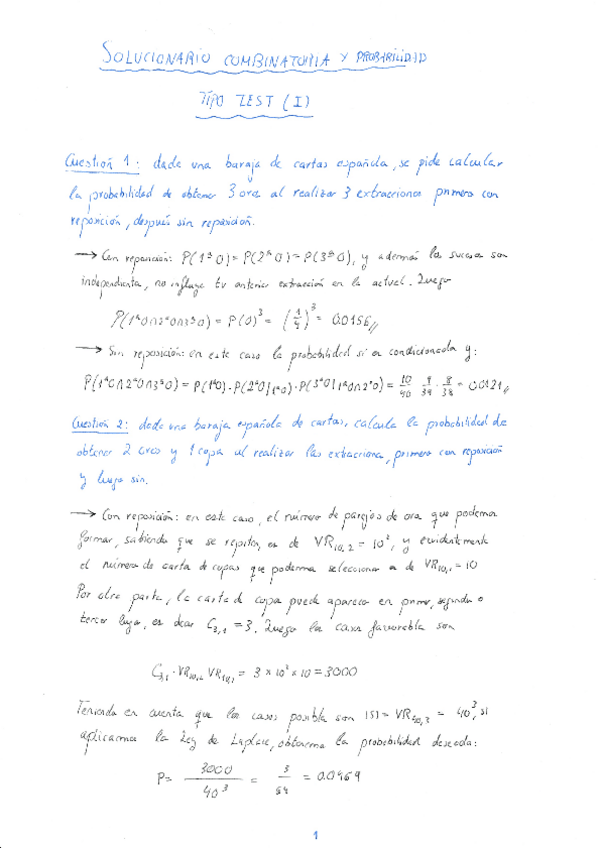 SOLUCIONARIO COMBINATORIA Y PROBABILIDAD
TIPO TEST (I)
Cuestión 1: dada una baraja de cartas española, se pide calcular
la probabilidad de obtener 3 oros al realizar 3 extracciones primero con
reposición, después sin reposición.
→ Con reposición: P(1ª O) = P(2ª O) = P(3ª O), y además los sucesos son
independientes, no influye tu anterior extracción en la actual. Luego
P(1ªO∩2ªO∩3ªO) = P(O)³ = (1/4)³ = 0.0156
→ Sin reposición: en este caso la probabilidad sí es condicionada y:
P(1ªO∩2ªO∩3ªO) = P(1ªO)·P(2ªO|1ªO)·P(3ªO|1ªO∩2ªO) = 10/40 · 9/39 · 8/38 = 0.0121
Cuestión 2: dada una baraja española de cartas, calcula la probabilidad de
obtener 2 oros y 1 copa al realizar las extracciones, primero con reposición
y luego sin.
→ Con reposición: en este caso, el número de parejas de oros que podemos
formar, sabiendo que se repiten, es de VR₁₀,₂ = 10², y evidentemente
el número de cartas de copas que podemos seleccionar es de VR₁₀,₁ = 10
Por otra parte, la carta de copas puede aparecer en primer, segundo o
tercer lugar, es decir C₃,₁ = 3. Luego los casos favorables son
C₃,₁ · VR₁₀,₂ VR₁₀,₁ = 3 × 10² × 10 = 3000
Teniendo en cuenta que los casos posibles son |S| = VR₄₀,₃ = 40³, si
aplicamos la Ley de Laplace, obtenemos la probabilidad deseada:
P = 3000/40³ = 3/64 = 0.0469
1